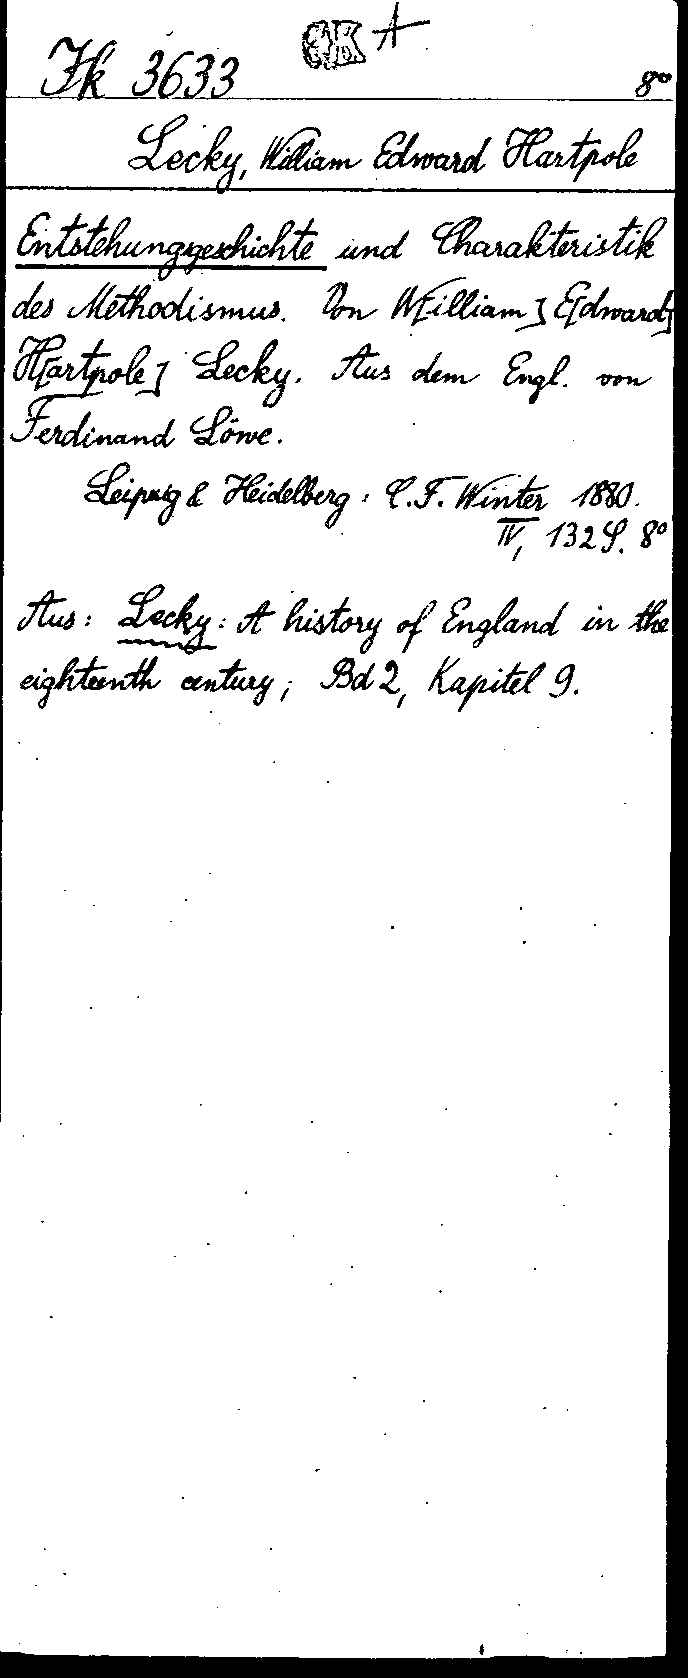 Fk 3633 A 8°
Lecky, William Edward Hartpole
Entstehungsgeschichte und Charakteristik
des Methodismus. Von W[illiam] E[dward]
H[artpole] Lecky. Aus dem Engl. von
Ferdinand Löwe.
Leipzig & Heidelberg: C. F. Winter 1880.
IV, 132 S. 8°
Aus: Lecky: A history of England in the
eighteenth century; Bd 2, Kapitel 9.